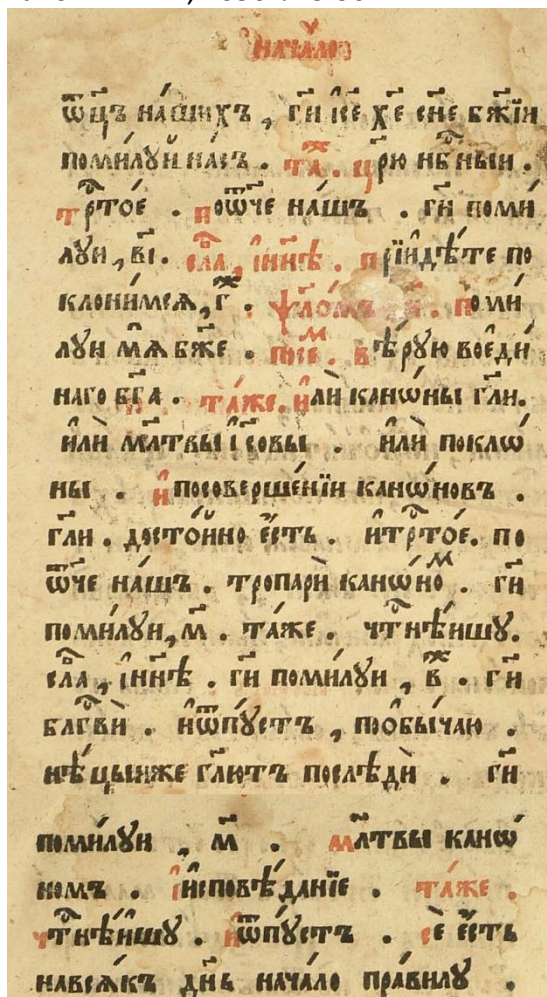 Нача́ло
ѿц҃ъ на́шихъ , гі҃ і҃се х҃е сн҃е бж҃їи
поми́лꙋй на́съ . та́ж . цр҃ю нбⷭ҇ныи .
трⷭ҇то́е . поѿ́че на́шъ . гі҃ поми́
лꙋи , в҃і . сла́ , ї нн҃ѣ . прїидѣ́те по
клони́мсѧ , г҃ . ѱало́мъ н҃ . поми́
лꙋи мѧ̀ бж҃е . посе́м . вѣ́рꙋю воеди́
наго бг҃а . та́же . и҆лѝ канѡ́ны гл҃и .
и҆лѝ мл҃твы і҆с҃овы . и҆лѝ покло́
ны . и҆ посоверше́нїи кано́новъ .
гл҃и . досто́йно є҆́сть . и҆ трⷭ҇то́е . по
ѿ́че на́шъ . тропарѝ канѡ́ном . гі҃
поми́лꙋи , м҃ . та́же . чтⷭ҇нѣ́ишꙋ .
сла́ , ї нн҃ѣ . гі҃ поми́лꙋи , в҃ж . гі҃
благⷭ҇вѝ . и҆ ѿпꙋ́стъ , пообы́чаю .
нѣ́цыиже гл҃ютъ послѣдѝ . гі҃
поми́лꙋи , м҃ . мл҃твы кано́
номъ . і҆ исповѣ́данїе . та́же .
чтⷭ҇нѣ́ишꙋ . и҆ ѿпꙋ́стъ . се є҆́сть
навсѧ́къ дн҃ь нача́ло пра́вилꙋ .